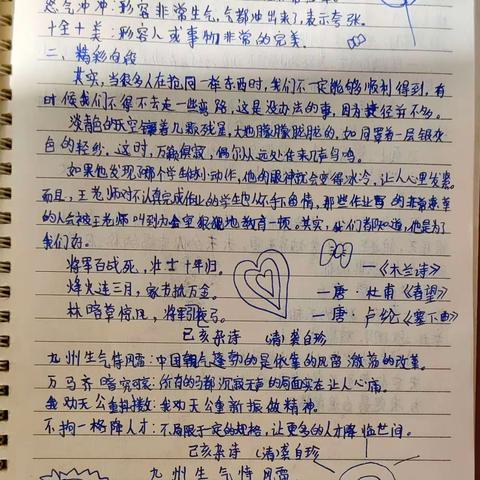 怒气冲冲：形容非常生气，气都冲出来了，表示夸张。
十全十美：形容人或事物非常的完美。
二、精彩句段
其实，当很多人在抢同一样东西时，我们不一定能够顺利得到，有
时候我们不得不去走一些弯路，这是没办法的事，因为捷径并不多。
淡青色的天空镶着几颗残星，大地朦朦胧胧的，如同罩着一层银灰
色的轻纱。这时，万籁俱寂，偶尔从远处传来几声鸟鸣。
如果他发现哪个学生做小动作，他的眼神就会变得冰冷，让人心里发怵。
而且，王老师对不认真完成作业的学生也从不手下留情，那些作业写的非常潦草
的人会被王老师叫到办公室狠狠地教育一顿。其实，我们都知道，他是为了
我们好。
将军百战死，壮士十年归。 —《木兰诗》
烽火连三月，家书抵万金。 —唐·杜甫《春望》
林暗草惊风，将军引夜弓。 —唐·卢纶《塞下曲》
己亥杂诗 （清）龚自珍
九州生气恃风雷：中国朝气蓬勃的是依靠的风雷激荡的改革。
万马齐喑究可哀：所有的马都沉寂无声的局面实在让人心痛。
我劝天公重抖擞：我劝天公重新振做精神。
不拘一格降人才：不局限于定的规格，让更多的人才降临世间。
己亥杂诗 （清）龚自珍
九州生气恃风雷